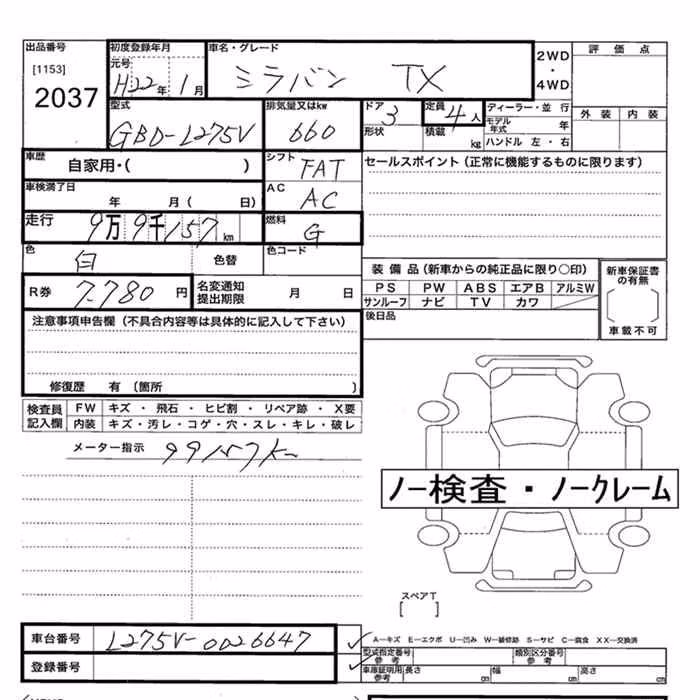 出品番号 初度登録年月 車名・グレード 評価点
[1153] 元号 2WD
2037 H22年 1月 ミラバン TX ・
4WD
型式 排気量又はkw ドア 定員 ディーラー・並 行 外 装 内 装
GBD-L275V 660 3 4人 モデル年式 年
形状 積載 kg ハンドル 左・右
車歴 自家用・( ) シフト FAT セールスポイント(正常に機能するものに限ります)
車検満了日 年 月( 日) AC AC
走行 9万9千157km 燃料 G
色 白 色替 色コード
装 備 品(新車からの純正品に限り○印) 新車保証書の有無
R券 7.780円 名変通知提出期限 月 日 PS PW ABS エアB アルミW
サンルーフ ナビ TV カワ
注意事項申告欄(不具合内容等は具体的に記入して下さい) 後日品 車載不可
修復歴 有(箇所 )
検査員記入欄 FW キズ・飛石・ヒビ割・リペア跡・X要
内装 キズ・汚レ・コゲ・穴・スレ・キレ・破レ
メーター指示 99157K
ノー検査・ノークレーム
スペアT
[ ]
車台番号 L275V-0026647 A－キズ E－エクボ U－凹み W－補修跡 S－サビ C－腐食 XX－交換済
登録番号 型式指定番号 参考 類別区分番号 参考
車庫証明用 参考 長さ cm 幅 cm 高さ cm